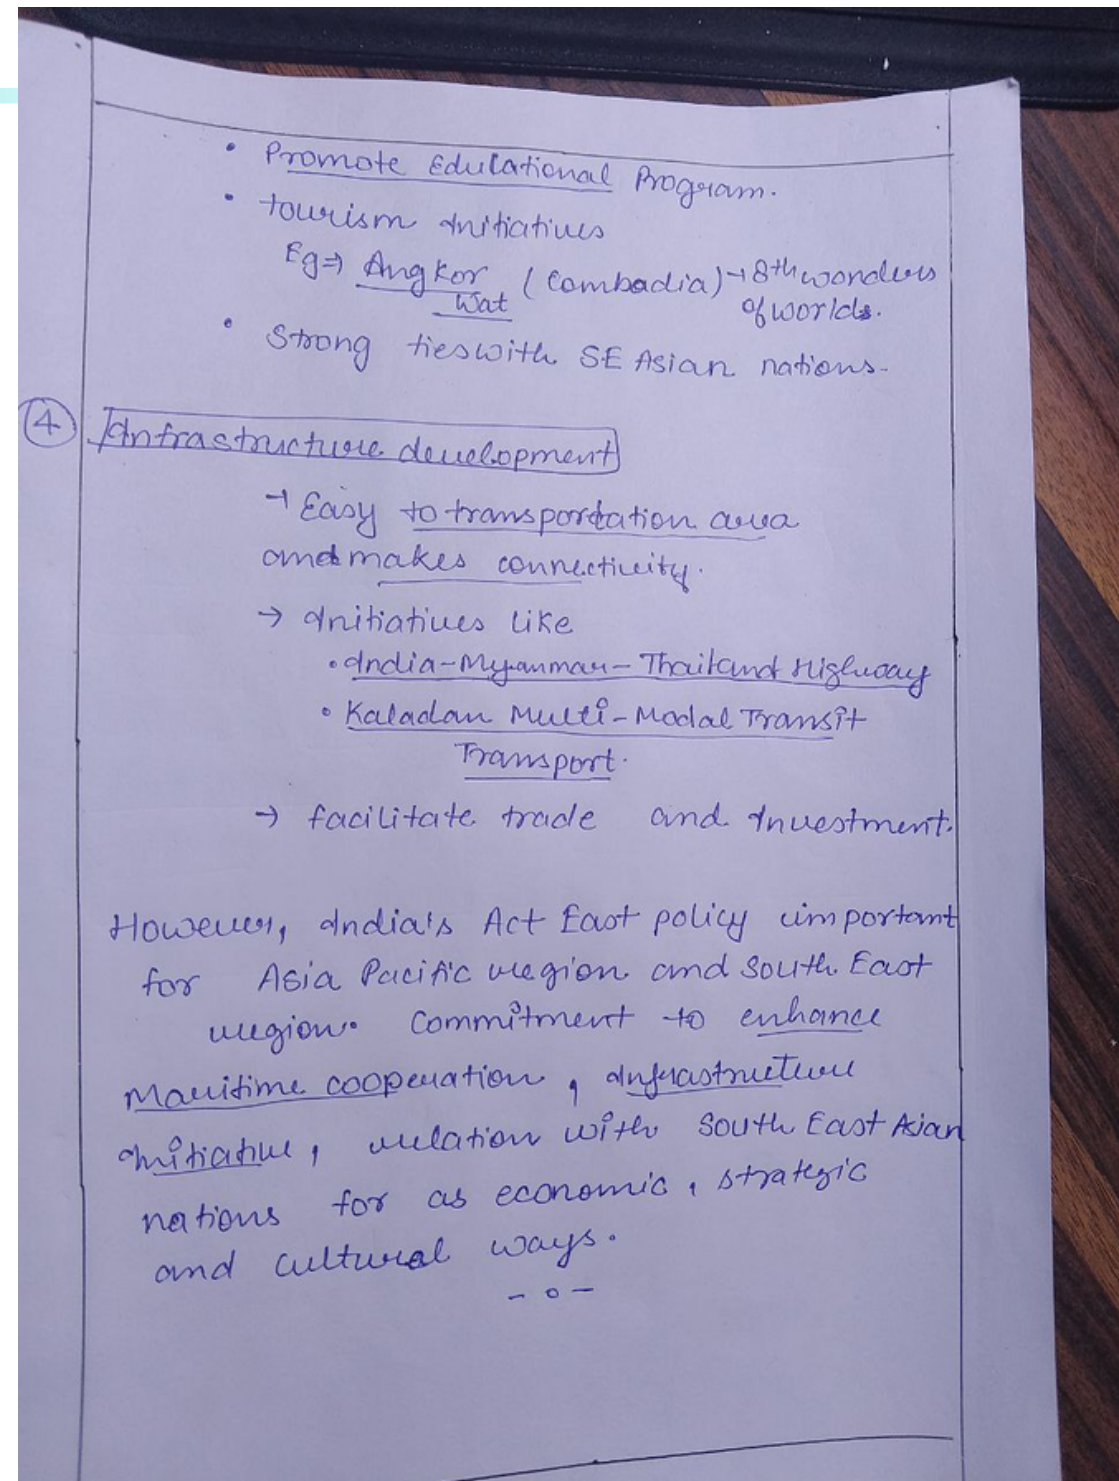 • Promote Edulational Program.
• tourism Initiatives
Eg⇒ Angkor Wat (Combadia) → 8th wonders of worlds.
• Strong ties with SE Asian nations.
④ Infrastructure development
→ Easy to transportation area
and makes connectivity.
→ Initiatives like
• India-Myanmar-Thailand Highway
• Kaladan Multi-Modal Transit
Transport.
→ facilitate trade and Investment.
However, India's Act East policy important
for Asia Pacific region and South East
region. Commitment to enhance
Maritime cooperation, Infrastructure
Initiative, relation with South East Asian
nations for as economic, strategic
and cultural ways.
- o -